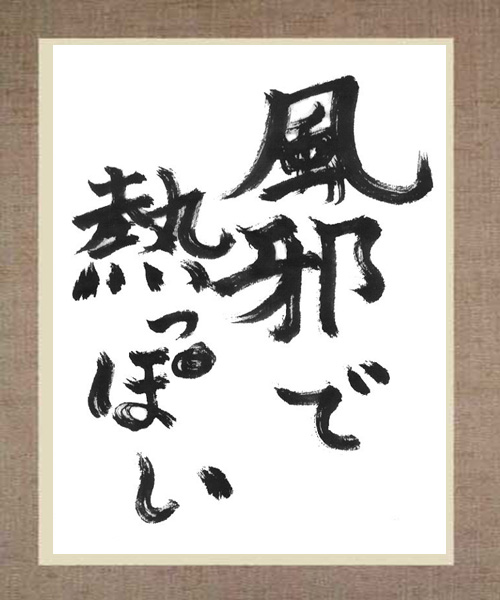 風邪で
熱っぽい